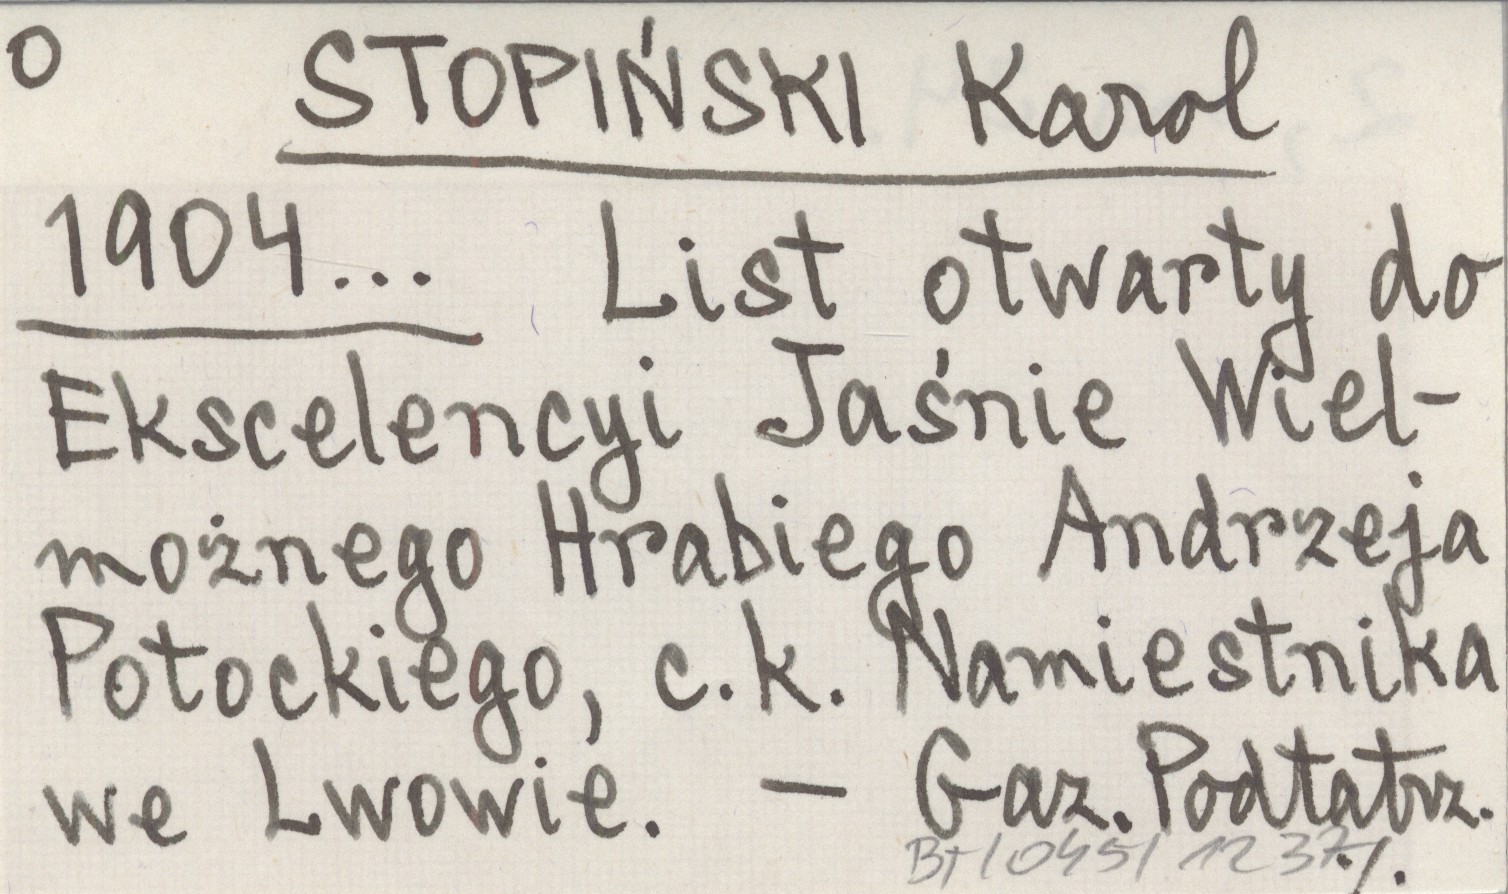 O STOPIŃSKI Karol
1904... List otwarty do
Ekscelencyi Jaśnie Wiel-
możnego Hrabiego Andrzeja
Potockiego, c.k. Namiestnika
we Lwowie. — Gaz. Podtatrz.
./.